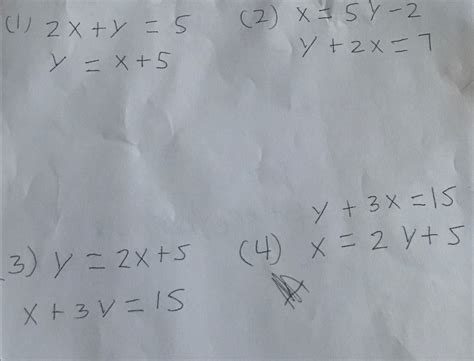 (1) 2x+y = 5
y = x+5
(2) x = 5y-2
y + 2x = 7
3) y = 2x+5
x+3y = 15
(4) y + 3x = 15
x = 2y+5